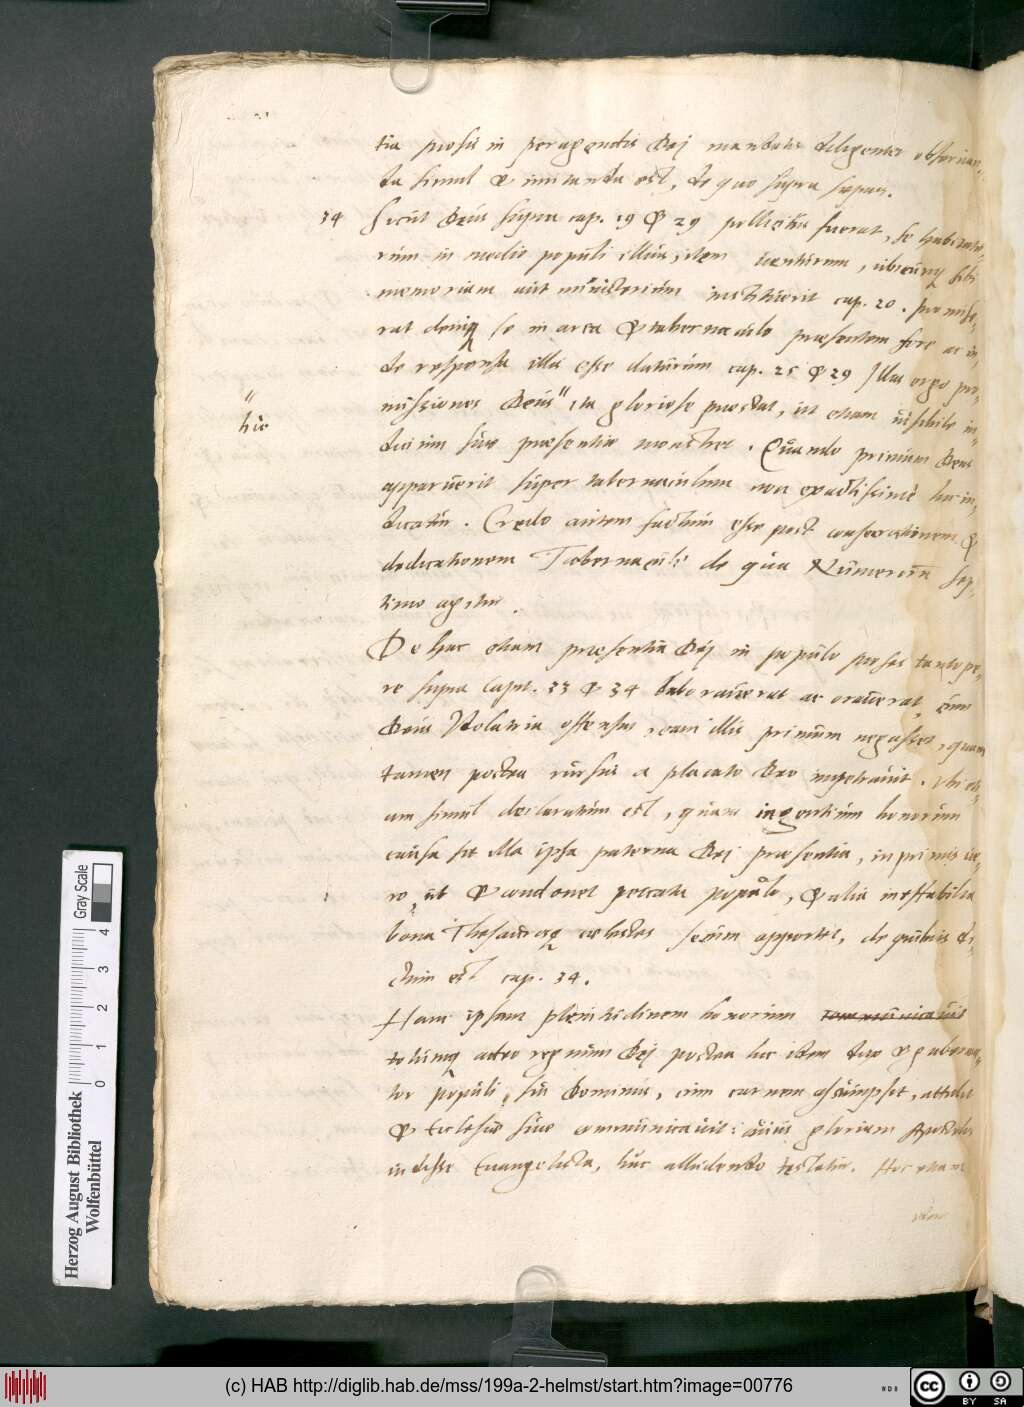 tia prosis in peragendis Dej mandatis diligenter obseruan-
da simul & imitanda est, de quo supra saepius.
34 Sicut Deus supra cap. 19 & 29 pollicitus fuerat, se habitatu-
rum in medio populi illius, item venturum, ubicunq sibi
memoriam aut ministerium instituerit cap. 20. promise-
rat deniq se in arca & tabernaculo praesentem fore ac in-
de responsa illis esse daturum cap. 25 & 29 Illas ergo pro-
missiones Deus" ita gloriose praestat, ut etiam visibile in-
" hic
dicium suae praesentiae monstret. Quando primum Deus
apparuerit super tabernaculum non exactissime hic in-
dicatur. Credo autem factum esse post consecrationem &
dedicationem Tabernaculi de qua Numerorum sep-
timo agitur.
De hac etiam praesentia Dej in populo Moses tantope-
re supra Caput. 33 & 34 laborauerat ac orauerat, cum
Deus Idolatria offensus, eam illis primum negasset, quam
tamen postea rursus a placato Deo impetrauit. Ubi eti-
am simul declaratum est, quam ingentium bonorum
causa sit illa ipsa paterna Dej praesentia, in primis ve-
ro, ut & condonet peccata populo, & alia ineffabilia
bona Thesaurosq caelestes secum apportet, de quibus di-
ctum est cap. 34.
Hanc ipsam plenitudinem bonorum communicauit
totumq adeo regnum Dej postea hic idem dux & guberna-
tor populi, filius Dominus, cum carnem assumpsit, attulit
& Ecclesiae suae communicauit: cuius gloriam Apostolus
uidisse Euangelista, huc alludendo testatur. Hoc etiam
(c) HAB http://diglib.hab.de/mss/199a-2-helmst/start.htm?image=00776
Herzog August Bibliothek
Wolfenbüttel
0 1 2 3 4
Gray Scale
CC BY SA